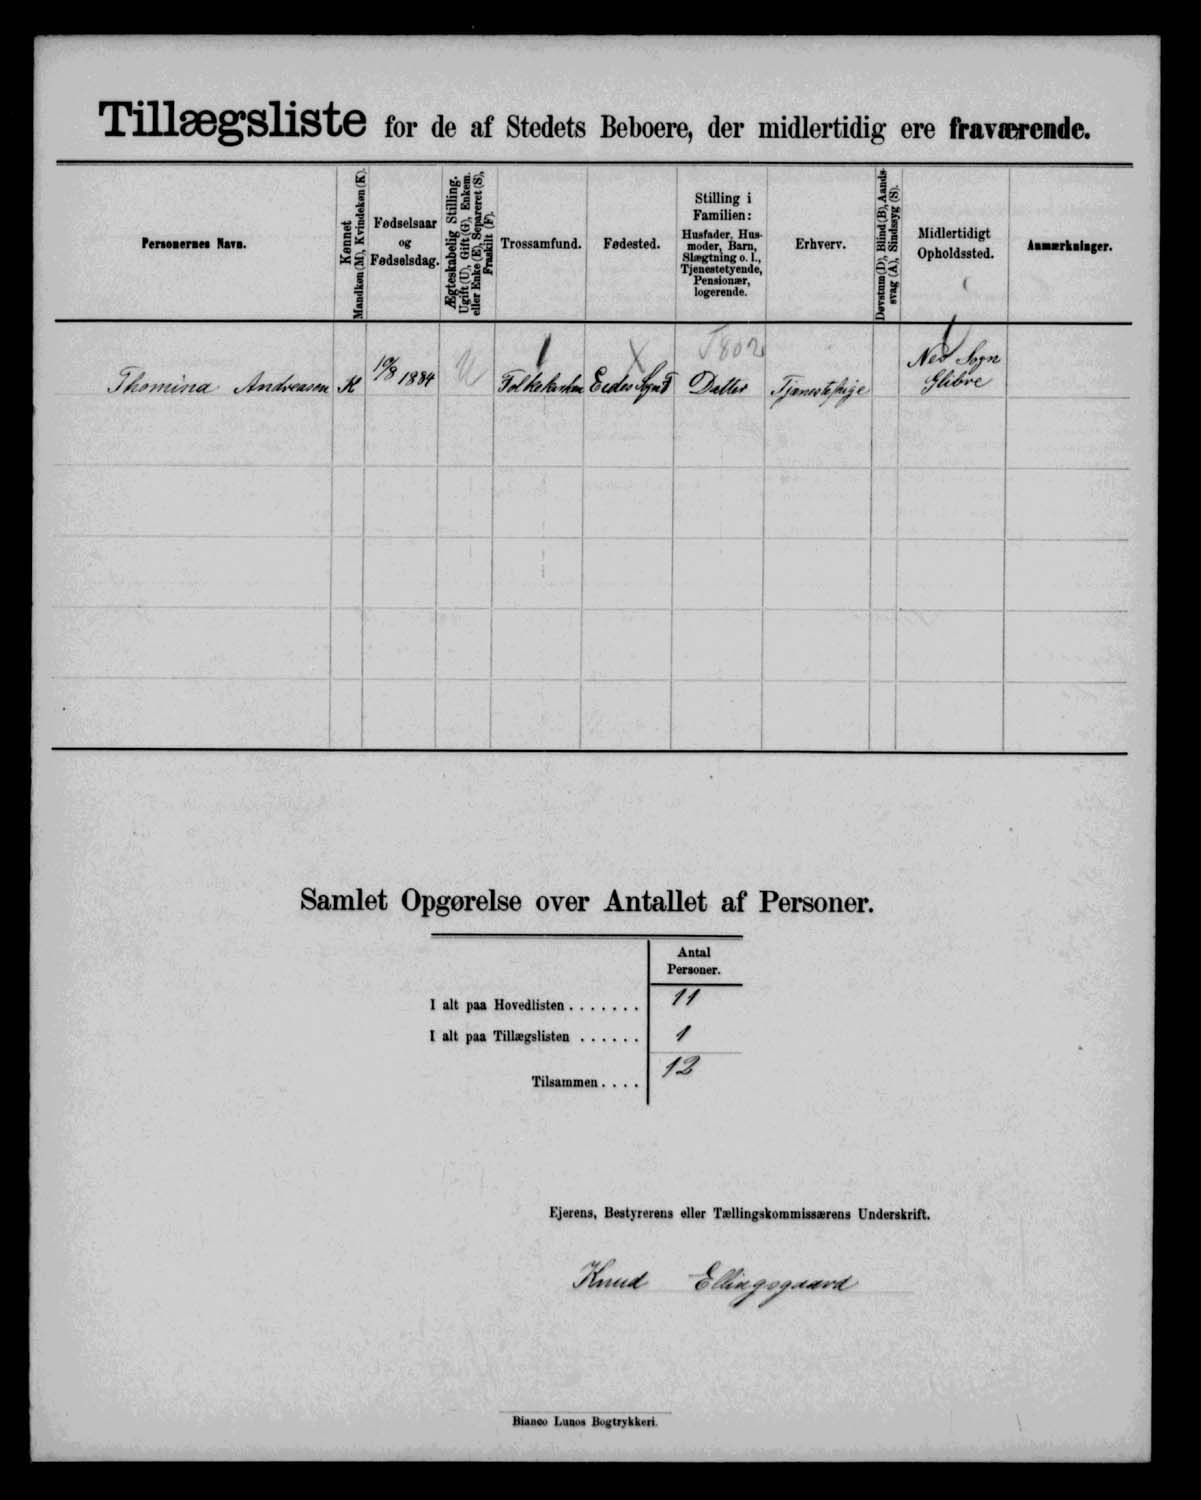 Tillægsliste for de af Stedets Beboere, der midlertidig ere fraværende.
Personernes Navn.
Kønnet
Mandkøn (M), Kvindekøn (K).
Fødselsaar
og
Fødselsdag.
Ægteskabelig Stilling.
Ugift (U), Gift (G), Enkem.
eller Enke (E), Separeret (S),
Fraskilt (F).
Trossamfund.
Fødested.
Stilling i
Familien:
Husfader, Hus-
moder, Barn,
Slægtning o. l.,
Tjenestetyende,
Pensionær,
logerende.
Erhverv.
Døvstum (D), Blind (B), Aands-
svag (A), Sindssyg (S).
Midlertidigt
Opholdssted.
Anmærkninger.
Thomina Andreasen K 10/8 1884 U Folkekirken Eides Sogn F Datter Tjenestepige
Nes Sogn
T802
Samlet Opgørelse over Antallet af Personer.
Antal
Personer.
I alt paa Hovedlisten . . . . . . . 11
I alt paa Tillægslisten . . . . . . 1
Tilsammen . . . . 12
Ejerens, Bestyrerens eller Tællingskommissærens Underskrift.
Knud Ellingsgaard
Bianco Lunos Bogtrykkeri.